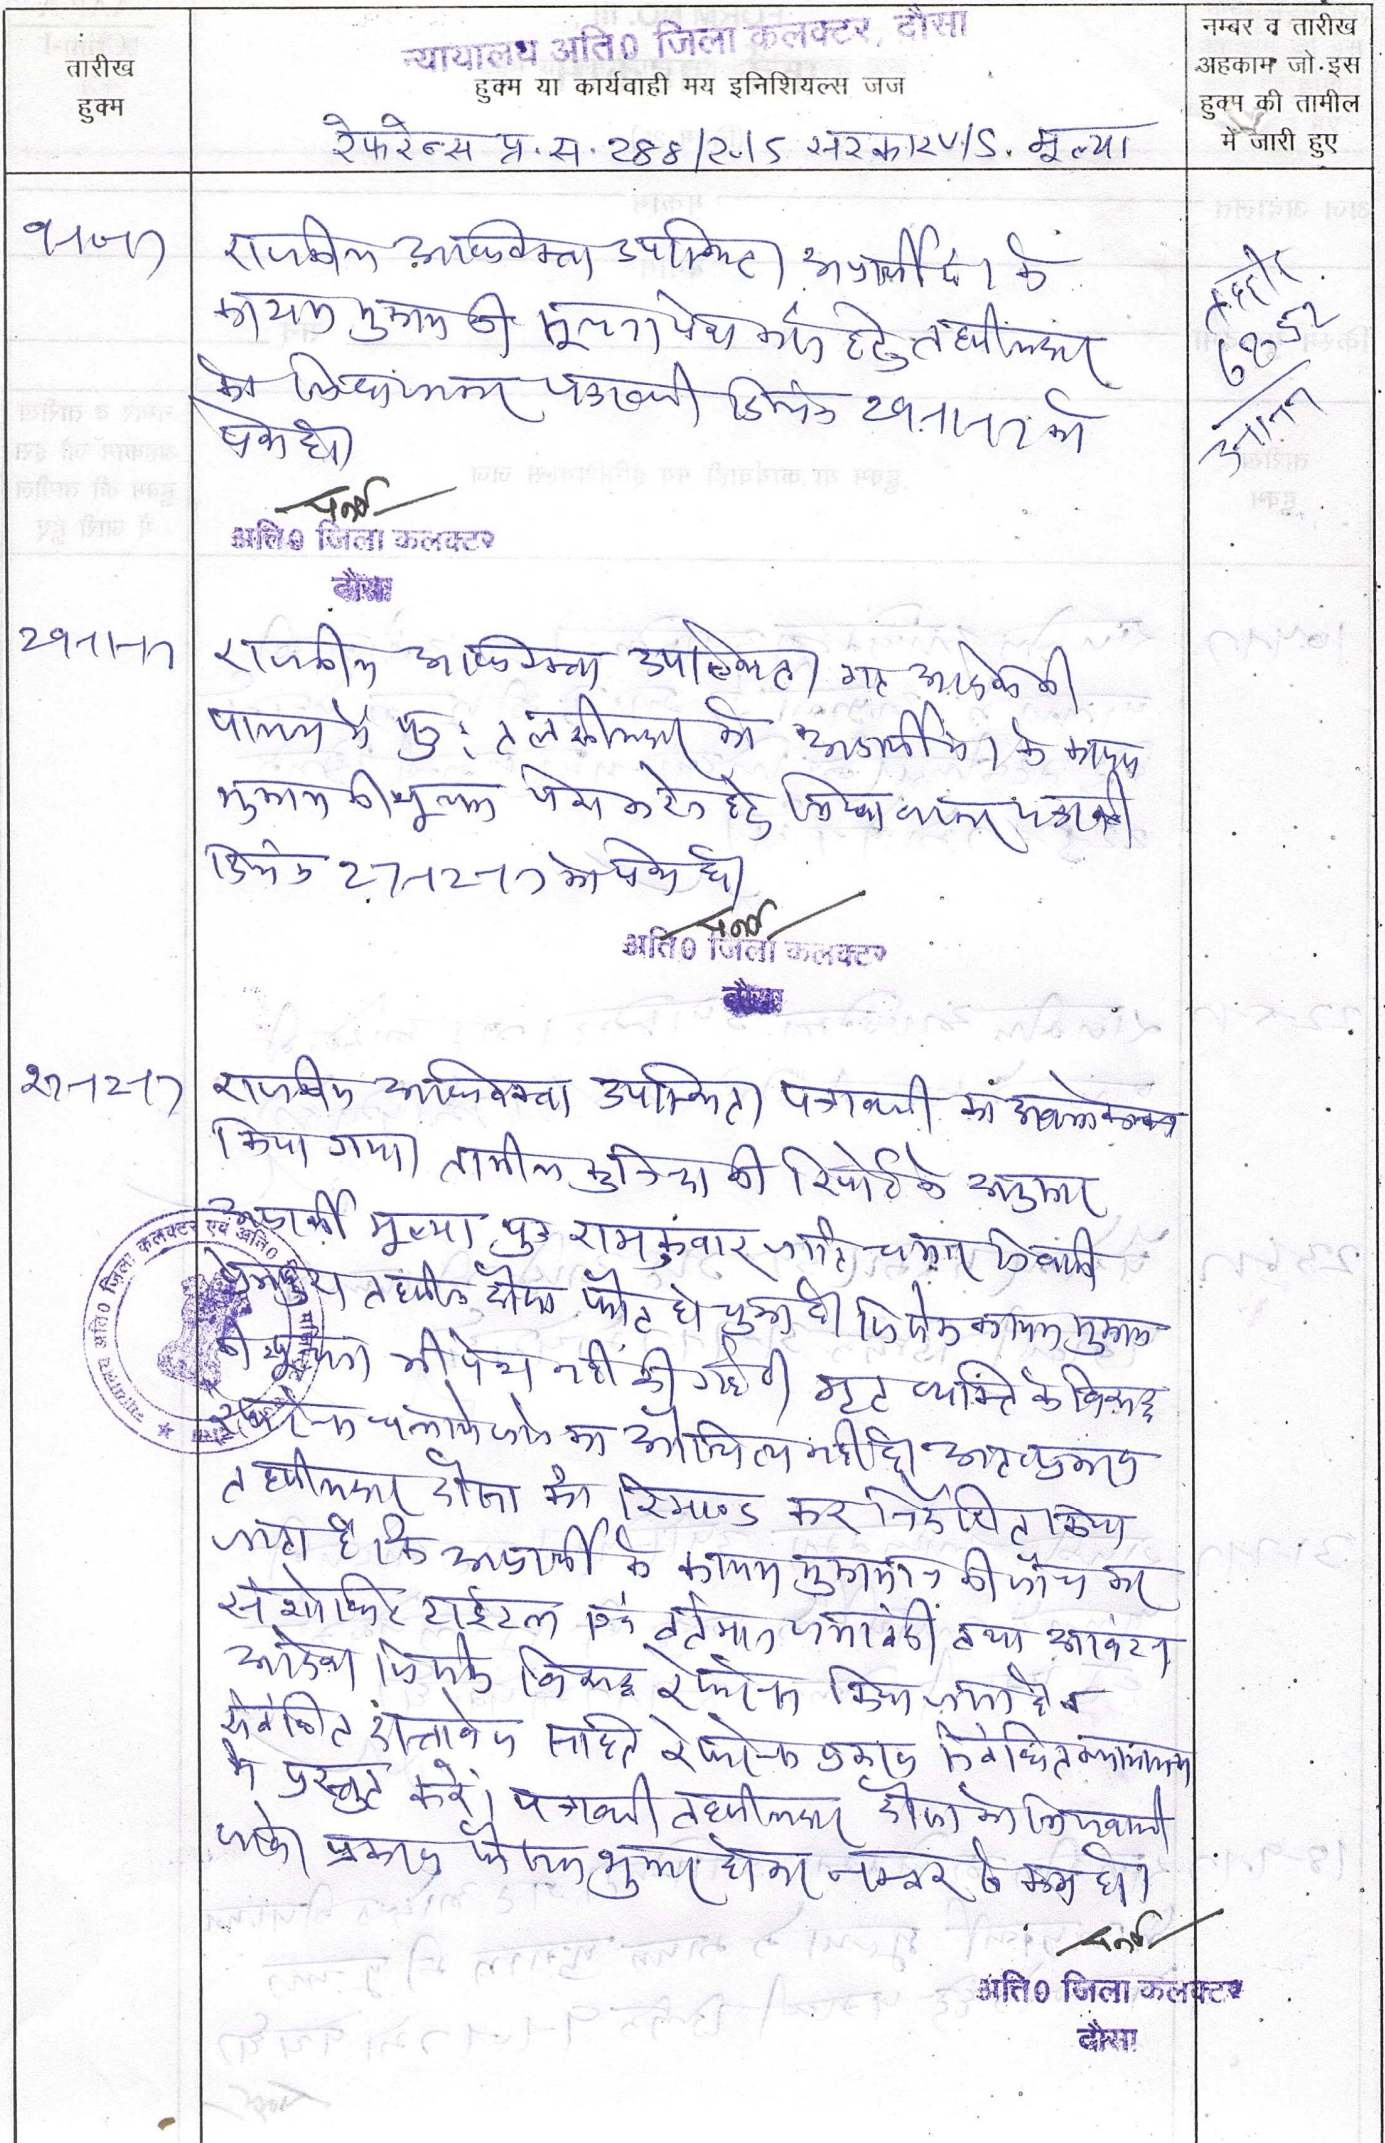 तारीख
हुक्म
न्यायालय अति0 जिला कलक्टर, दौसा
हुक्म या कार्यवाही मय इनिशियल्स जज
रेफरेन्स प्र.स. 288/2015 सरकार V/S. मूल्या
नम्बर व तारीख
अहकाम जो इस
हुक्म की तामील
में जारी हुए
राजकीय अधिवक्ता उपस्थित। अप्रार्थी के
कायम मुकाम की सूचना पेश करने हेतु तहसीलदार
को लिखा जाकर पत्रावली दिनांक 29-11-17 को
पेश हो।
अति0 जिला कलक्टर
दौसा
29-11-17
राजकीय अधिवक्ता उपस्थित। गत आदेश की
पालना में पुनः तहसीलदार को अप्रार्थी के कायम
मुकाम की सूचना पेश करने हेतु लिखा जाकर पत्रावली
दिनांक 27-12-17 को पेश हो।
अति0 जिला कलक्टर
दौसा
27-12-17
राजकीय अधिवक्ता उपस्थित। पत्रावली का अवलोकन
किया गया। तामील कुनिन्दा की रिपोर्ट के अनुसार
अप्रार्थी मूल्या पुत्र रामकुंवार जाति चमार निवासी
तहसील दौसा फौत हो चुका है। जिसके कायम मुकाम
की सूचना भी पेश नहीं की गई है। मृत व्यक्ति के विरूद्ध
रेफरेन्स चलाये जाने का औचित्य नहीं है। अतः प्रकरण
तहसीलदार दौसा को रिमाण्ड कर निर्देशित किया
जाता है कि अप्रार्थी के कायम मुकामान की जाँच कर
संशोधित टाईटल मय वर्तमान जमाबंदी तथा आवंटन
आदेश जिसके विरूद्ध रेफरेन्स किया जाना है व
संबंधित दस्तावेज सहित रेफरेन्स प्रकरण न्यायालय
में प्रस्तुत करें। पत्रावली तहसीलदार दौसा को भिजवायी
जावे। प्रकरण फैसल शुमार होकर नम्बर से कम हो।
अति0 जिला कलक्टर
दौसा